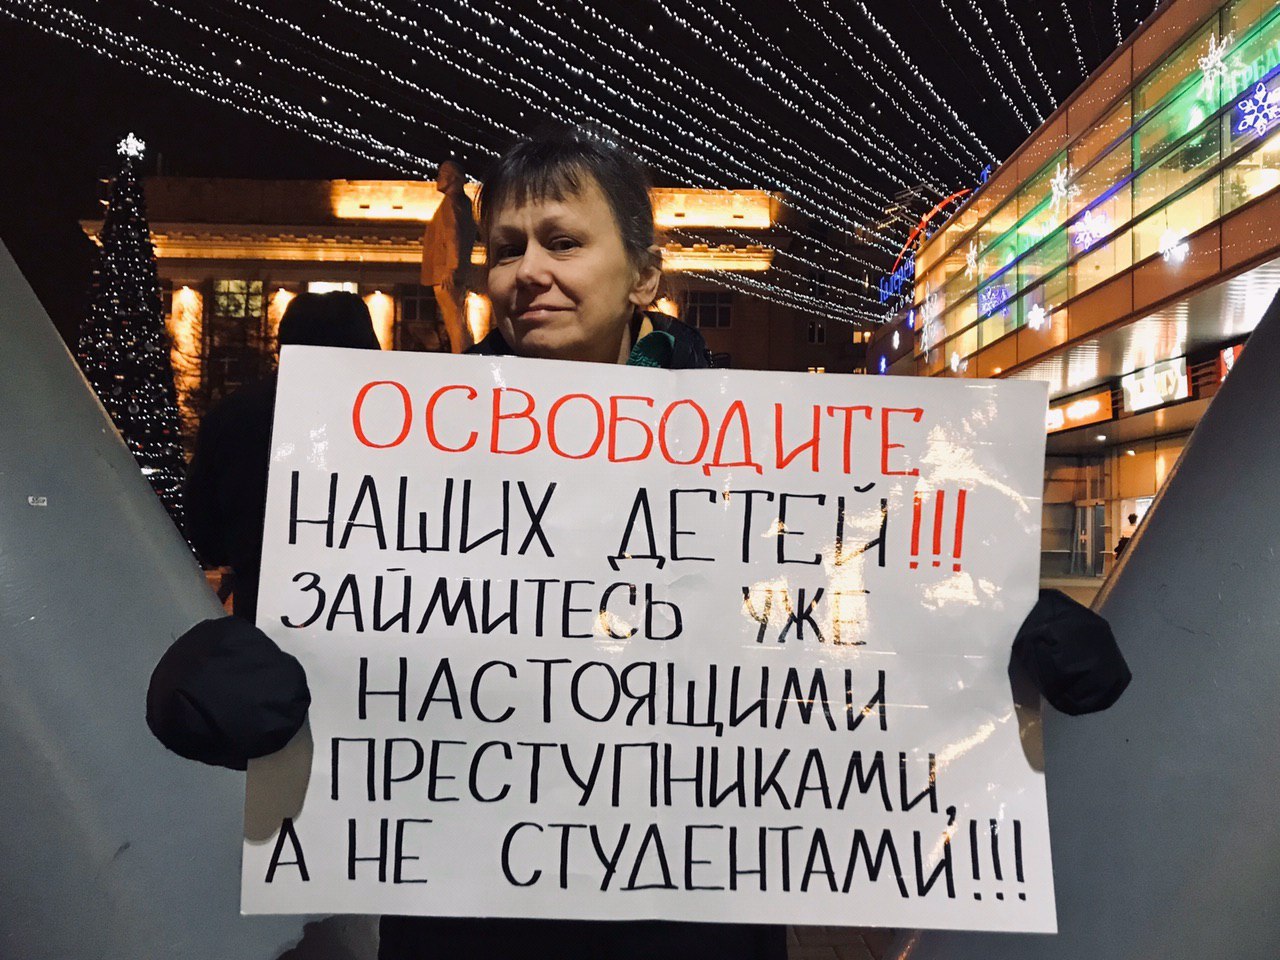 ОСВОБОДИТЕ
НАШИХ ДЕТЕЙ!!!
ЗАЙМИТЕСЬ УЖЕ
НАСТОЯЩИМИ
ПРЕСТУПНИКАМИ,
А НЕ СТУДЕНТАМИ!!!